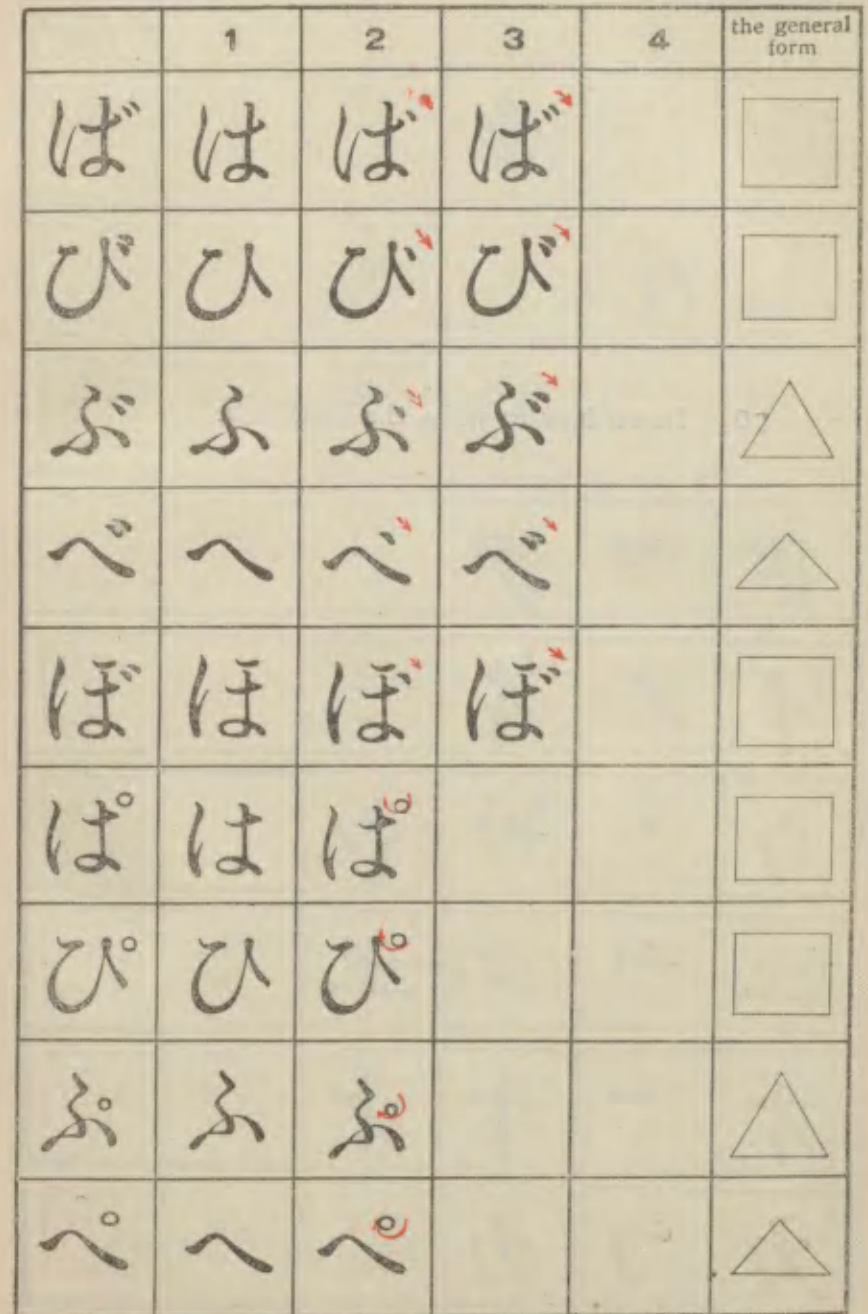 1 2 3 4 the general form
ば は ば ば
び ひ び び
ぶ ふ ぶ ぶ
べ へ べ べ
ぼ ほ ぼ ぼ
ぱ は ぱ
ぴ ひ ぴ
ぷ ふ ぷ
ぺ へ ぺ